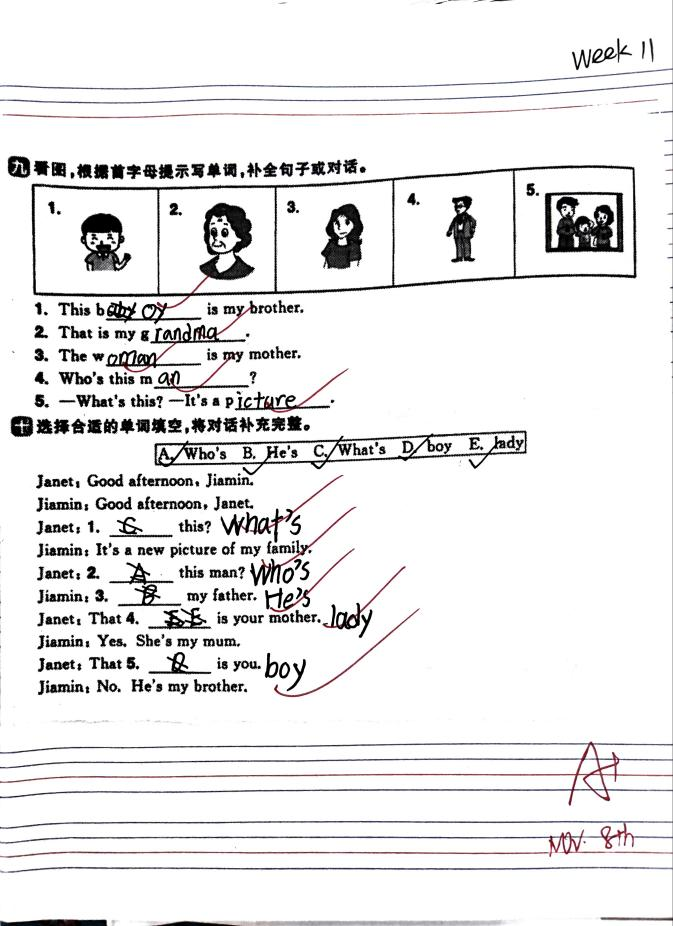 Week 11
九 看图,根据首字母提示写单词,补全句子或对话。
1. 2. 3. 4. 5.
1. This boy is my brother.
2. That is my grandma.
3. The woman is my mother.
4. Who's this man?
5. —What's this? —It's a picture.
十 选择合适的单词填空,将对话补充完整。
A. Who's B. He's C. What's D. boy E. lady
Janet: Good afternoon, Jiamin.
Jiamin: Good afternoon, Janet.
Janet: 1. C this? What's
Jiamin: It's a new picture of my family.
Janet: 2. A this man? Who's
Jiamin: 3. B my father. He's
Janet: That 4. E is your mother. lady
Jiamin: Yes. She's my mum.
Janet: That 5. D is you. boy
Jiamin: No. He's my brother.
A+
NOV. 8th